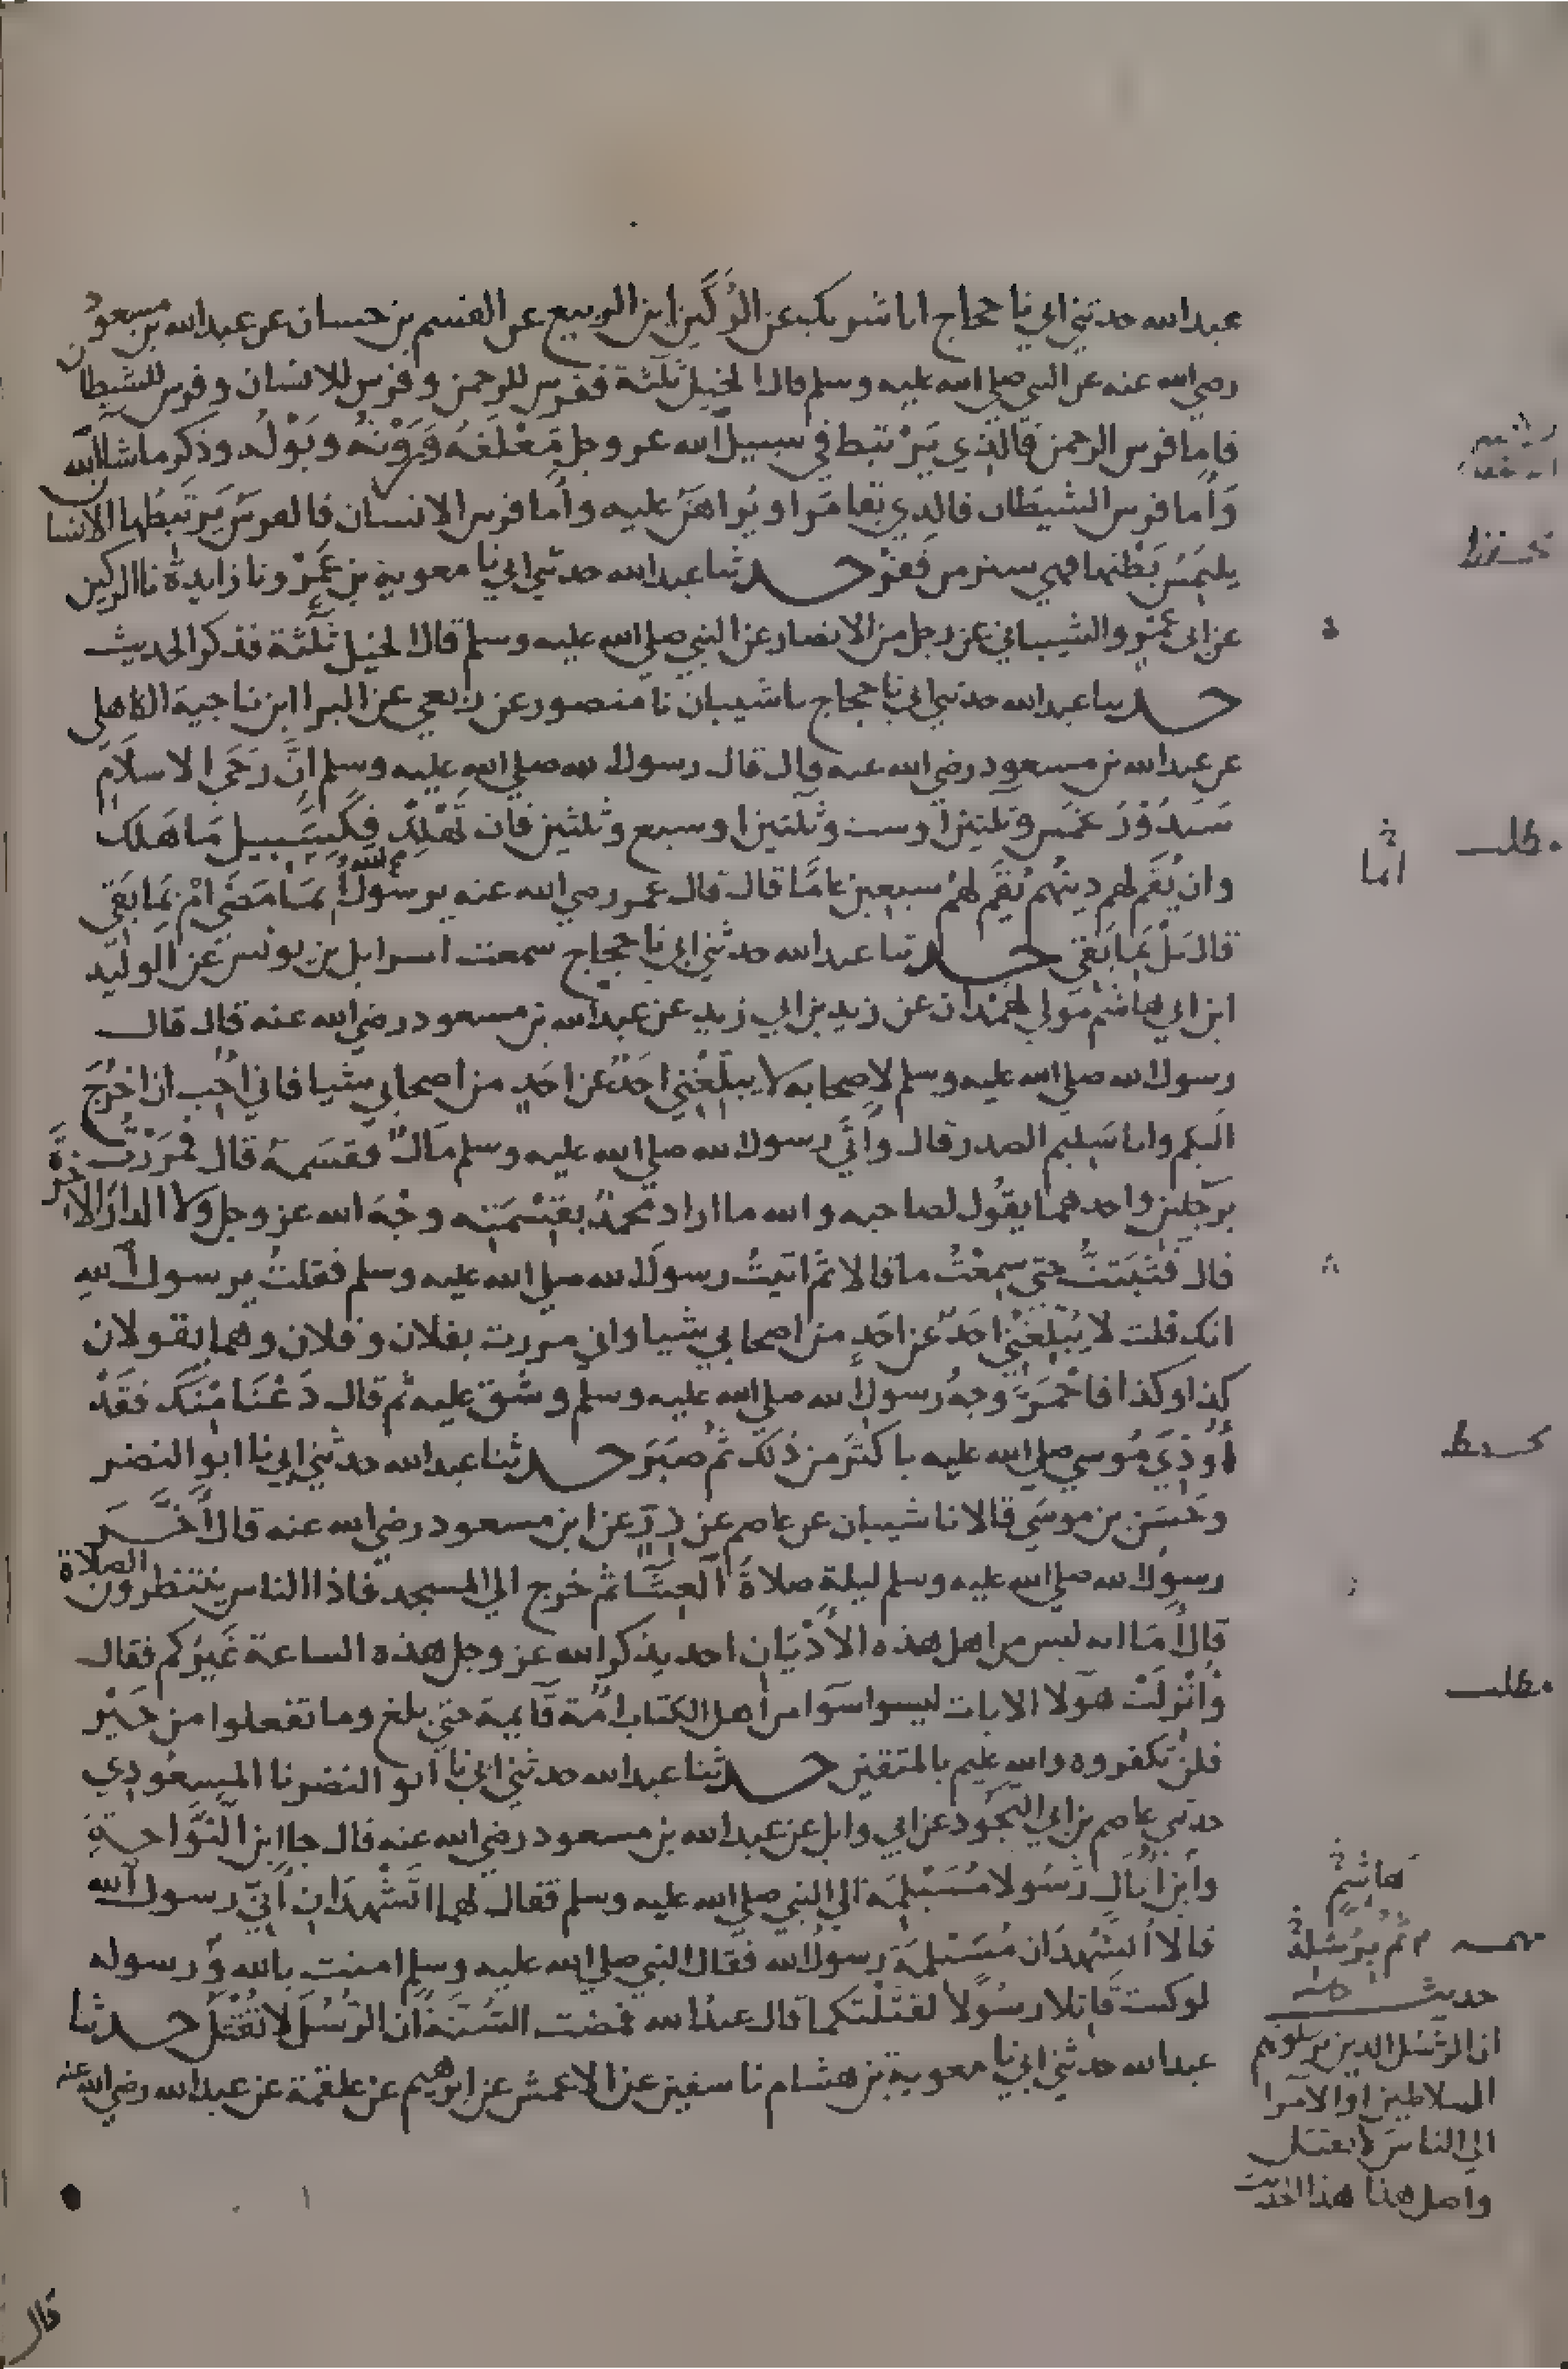 عبدالله حدثني ابي نا حجاج انا شريك عن الرُّكَين ابن الربيع عن القسم بن حسان عن عبدالله بن مسعود
رضي الله عنه عن النبي صلى الله عليه وسلم قال الخيل ثلثة ففرس للرحمن وفرس للانسان وفرس للشيطان
فاما فرس الرحمن فالذي يَرْتبط في سبيل الله عز وجل فَعْلَفُهُ وَرَوْثُهُ وبَوْلُه وذكر ما شاالله
وَأما فرس الشيطان فالذي يُقامَرُ او يُراهَنُ عليه وأما فرس الانسان فالفرسُ يَرتَبِطُها الانسا
يلتمِسُ بَطْنها فهي ستر من فَقْرٍ حدثنا عبدالله حدثني ابي نا معوية بن عَمْرٍو نا زايدة نا الركين
عن ابي عَمْرٍو الشيباني عن رجل من الانصار عن النبي صلى الله عليه وسلم قال الخيل ثلثة فذكر الحديث
حدثنا عبدالله حدثني ابي نا حجاج نا شيبان نا منصور عن ربعي عن البرا ابن ناجية الكاهلي
عن عبدالله بن مسعود رضي الله عنه قال قال رسول الله صلى الله عليه وسلم انَّ رَحَى الاسلام
سَتَدُوْرُ بخمسٍ وثلثين او ست وثلثين او سبع وثلثين فان تَهْلِكْ فكسَبِيل مَا هَلك
وان يُقَم لهم دينُهم يُقَم لهمْ سبعين عامًا قال قال عمر رضي الله عنه يرسول الله أبمَا مَضَى امْ بمَا بَقَى
قال بَلْ بما بَقى حدثنا عبدالله حدثني ابي نا حجاج سمعت اسرايل بن يونس عن الوليد
ابن ابي هاشم مَولى لهَمْدان عن زيد بن ابي زيد عن عبدالله بن مسعود رضي الله عنه قال قال
رسول الله صلى الله عليه وسلم لاصحابه لا يبلّغْني احَدٌ عن احَدٍ من اصحابي شيا فاني احُب ان اخرُجَ
اليكم وانا سَليم الصدر قال وأتَى رسول الله صلى الله عليه وسلم مَالٌ فقسَمهُ قال فمرَرْتُ
برَجلين واحدهما يقُول لصاحبه والله ما اراد محمدٌ بقِسْمَتِه وجْهَ الله عز وجل ولا الدارَ الاخرَةَ
قال فتَثَبَّتُّ حتى سمعْتُ ما قالا ثم اتيتُ رسول الله صلى الله عليه وسلم فقلتُ يرسول الله
انك قلت لا يُبلّغْني احَدٌ عن احَدٍ من اصحابي شيا واني مررت بفلان وفلان وهما يقولان
كذا وكذا فاحْمَرَّ وجهُ رسول الله صلى الله عليه وسلم وشق عليه ثم قال دَعْنَا مْنك فقَدْ
أُوْذِيَ مُوسي صلى الله عليه باكثر من ذلك ثم صَبَرَ حدثنا عبدالله حدثني ابي نا ابوالنضر
وحَسَن بن موسَى قالا نا شيبان عن عاصم عن زِرّ عن ابن مسعود رضي الله عنه قال أخَّر
رسول الله صلى الله عليه وسلم ليلةٍ صلاةَ العِشَا ثم خرج الى المسجد فاذا الناس ينتظرون الصلاة
قال أمَا انه ليس من اهل هذه الأدْيَان احد يذكر الله عز وجل هذه الساعة غَيرُكم فقال
وأُنْزِلَتْ هَولا الايات ليسوا سَوَا من أهل الكتاب امّة قَايمة حتى بلغ وما تفعلوا من خَيْرٍ
فلن تكفروه والله عليم بالمتقين حدثنا عبدالله حدثني ابي نا ابوالنضر نا المسعُودي
حدثني عاصم بن ابي النَّجُود عن ابي وايل عن عبدالله بن مسعود رضي الله عنه قال جا ابن النَّوَّاحةِ
وابنُ أُثالٍ رسُولا مُسَيْلِمَة الى النبي صلى الله عليه وسلم فقال لهما اتَشْهدَانِ أَنّي رسول الله
قالا نشهدُ ان مُسَيْلمَة رسول الله فقال النبي صلى الله عليه وسلم امنت بالله ورسوله
لو كنت قاتلا رسُولًا لقتلتكما قال عبدُ الله فمضت السُّنّةُ ان الرّسُل لا تُقْتَلُ حدثنا
عبدالله حدثني ابي نا معوية بن هشام نا سفين عن الاعمش عن ابرهيم عن علقمة عن عبدالله رضي الله عنه
مطلب
أما
مطلب
هاشم
حديث
ان الرسُل الذين يرسلونهم
السلاطين او الامرا
الى الناس لا تقتل
واصل هذا هذا الحديث
قال